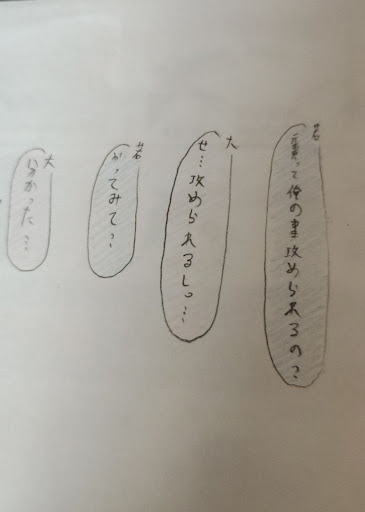 若
って俺の事攻められるの?
大
せ…攻められるしっ…
若
やってみて?
大
分かった…